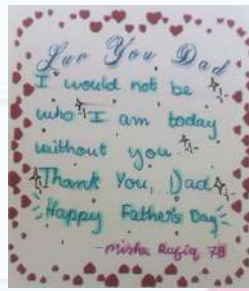 Luv You Dad
I would not be
who I am today
without you
Thank You, Dad
Happy Father's Day
-Misha Rafiq 7B